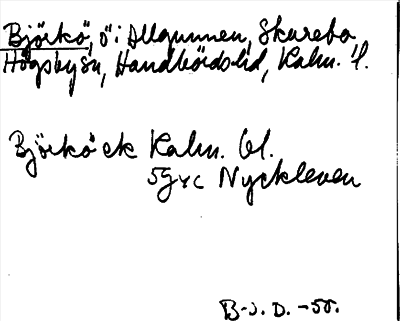 Björkö, ö i Allgunnen, Skurebo
Högsby sn, Handbörds hd, Kalm. l.
Björkö ek Kalm. bl.
5g vc Nyckleven
B-J. D. -55.